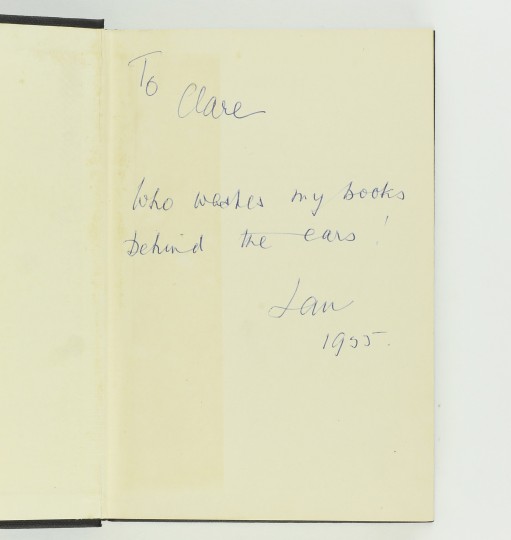 To
Clare
Who washes my books
behind the ears!
Ian
1955.